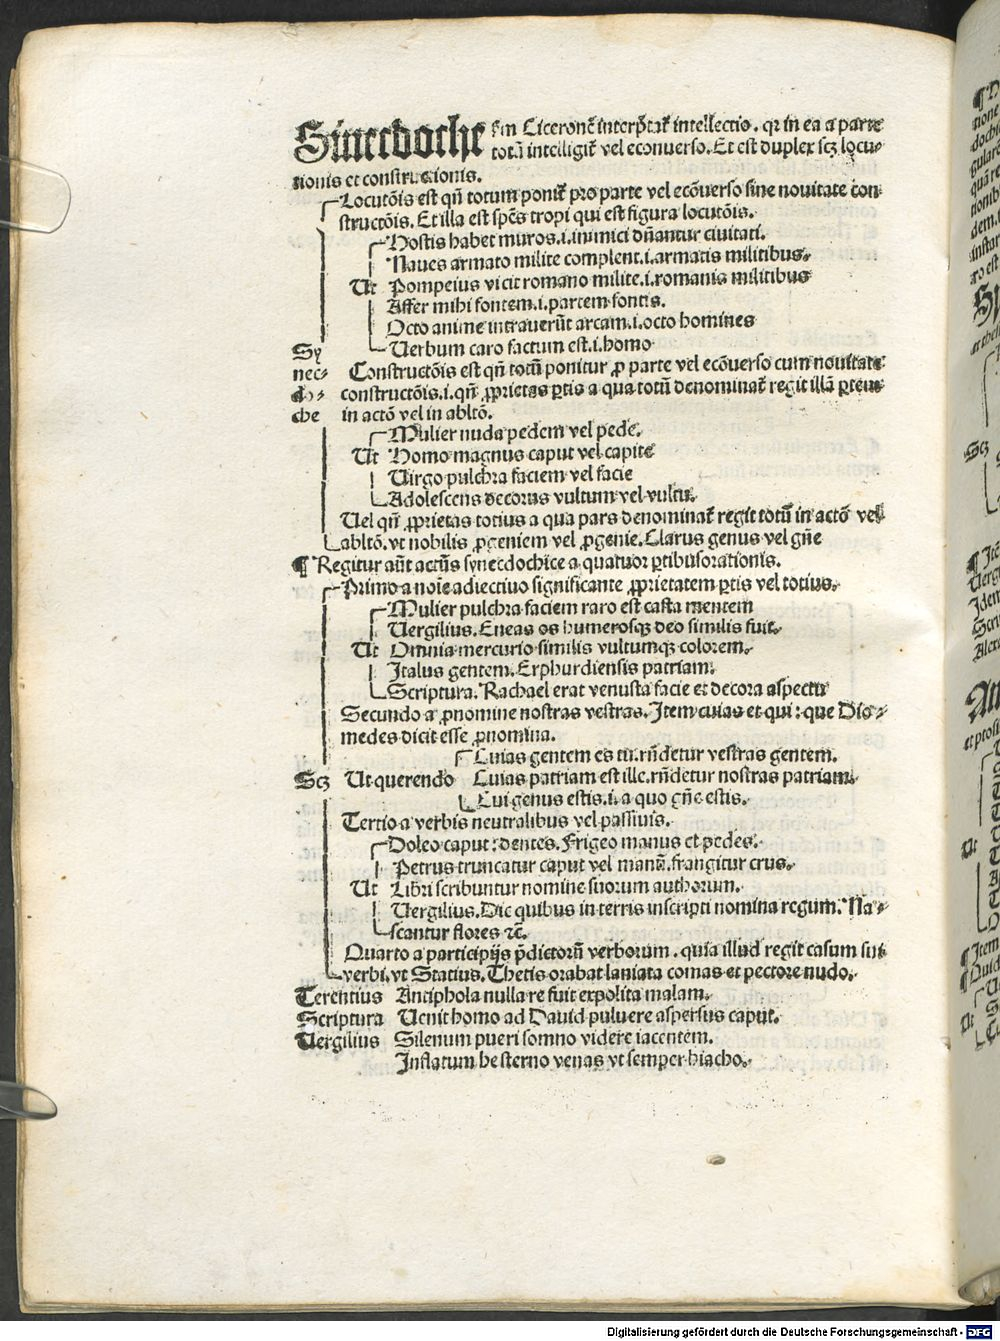 Sinecdoche ẜm Ciceronē interp̄tat᷑ intellectio. qꝛ in ea a parte
totū intelligit᷑ vel econuerso. Et est duplex scꝫ locu-
tionis et constructionis.
Locutōis est qn̄ totum ponit᷑ pro parte vel ecōuerso sine nouitate con-
structōis. Et illa est spēs tropi qui est figura locutōis.
Hostis habet muros .i. inimici dn̄antur ciuitati.
Naues armato milite complent .i. armatis militibus.
Ut Pompeius vicit romano milite .i. romanis militibus
Affer mihi fontem .i. partem fontis.
Octo anime intrauerūt arcam .i. octo homines
Verbum caro factum est .i. homo
Sy
nec- Constructōis est qn̄ totū ponitur ꝓ parte vel ecōuerso cum nouitate
do- constructōis .i. qn̄ ꝓprietas ꝑtis a qua totū denominat᷑ regit illā ꝑtem
che in actō vel in abltō.
Mulier nuda pedem vel pede.
Ut Homo magnus caput vel capite
Virgo pulchra faciem vel facie
Adolescens decorus vultum vel vultu.
Vel qn̄ ꝓprietas totius a qua pars denominat᷑ regit totū in actō vel
abltō. vt nobilis ꝓgeniem vel ꝓgenie. Clarus genus vel gn̄e
¶ Regitur aūt actūs synecdochice a quatuor ꝑtibus orationis.
Primo a noīe adiectiuo significante ꝓprietatem ꝑtis vel totius.
Mulier pulchra faciem raro est casta mentem
Vergilius. Eneas os humerosqꝫ deo similis fuit.
Ut Omnia mercurio similis vultumqꝫ colorem.
Italus gentem. Erphurdiensis patriam.
Scriptura. Rachael erat venusta facie et decora aspectu
Secundo a ꝓnomine nostras vestras. Item cuias et qui : que Dio-
medes dicit esse ꝓnomina.
Cuias gentem es tu. rn̄detur vestras gentem.
Scꝫ Ut querendo Cuias patriam est ille. rn̄detur nostras patriam.
Cui genus estis .i. a quo gn̄e estis.
Tertio a verbis neutralibus vel passiuis.
Doleo caput : dentes. Frigeo manus et pedes.
Petrus truncatur caput vel manū. frangitur crus.
Ut Libri scribuntur nomine suorum authorum.
Vergilius. Dic quibus in terris inscripti nomina regum. Na-
scantur flores ⁊c̄.
Quarto a participijs p̄dictorū verborum. quia illud regit casum sui
verbi. vt Statius. Thetis orabat laniata comas et pectore nudo.
Terentius Antiphola nulla re fuit expolita malam.
Scriptura Venit homo ad Dauid puluere aspersus caput.
Vergilius Silenum pueri somno videre iacentem.
Inflatum hesterno venas vt semper hiacho.
Digitalisierung gefördert durch die Deutsche Forschungsgemeinschaft - DFG